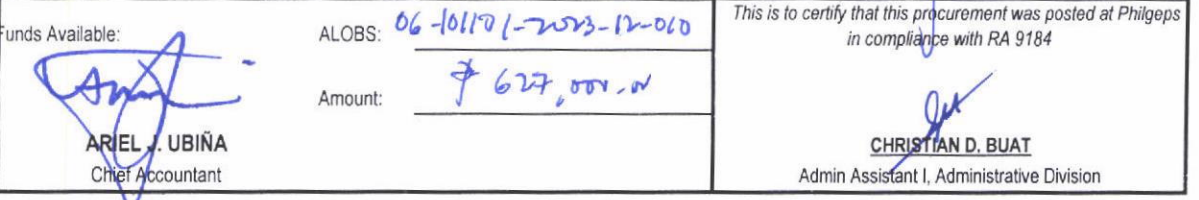 Funds Available:
ALOBS: 06-101101-2023-12-010
Amount: ₱ 627,000.00
ARIEL J. UBIÑA
Chief Accountant
This is to certify that this procurement was posted at Philgeps
in compliance with RA 9184
CHRISTIAN D. BUAT
Admin Assistant I, Administrative Division